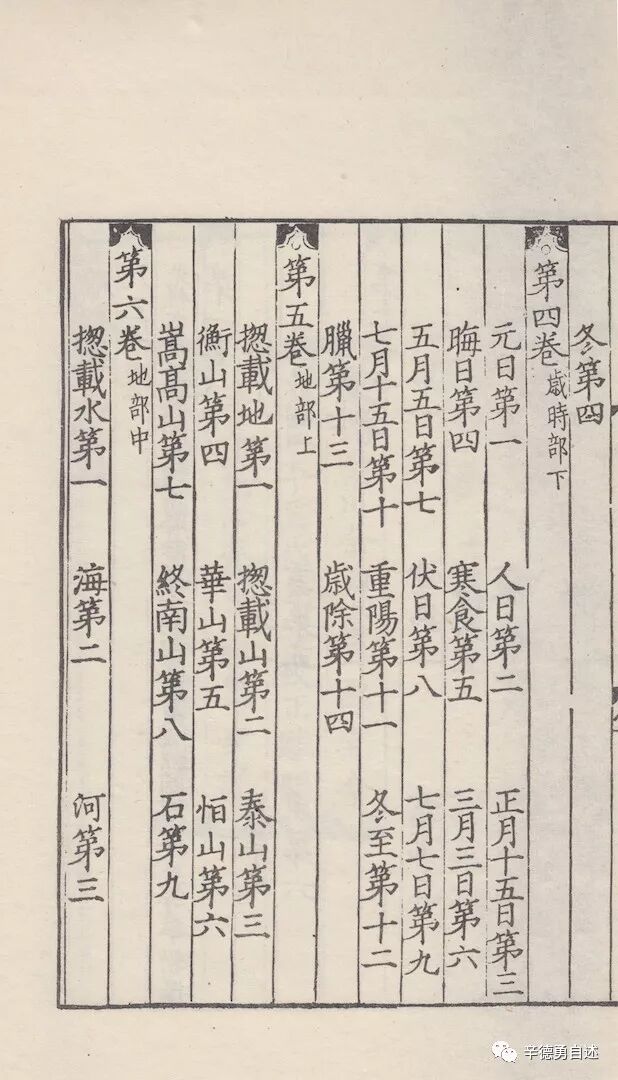 冬第四
第四卷歳時部下
元日第一　人日第二　正月十五日第三
晦日第四　寒食第五　三月三日第六
五月五日第七　伏日第八　七月七日第九
七月十五日第十　重陽第十一　冬至第十二
臘第十三　歳除第十四
第五卷地部上
揔載地第一　揔載山第二　泰山第三
衡山第四　華山第五　恒山第六
嵩高山第七　終南山第八　石第九
第六卷地部中
揔載水第一　海第二　河第三
辛德勇自述